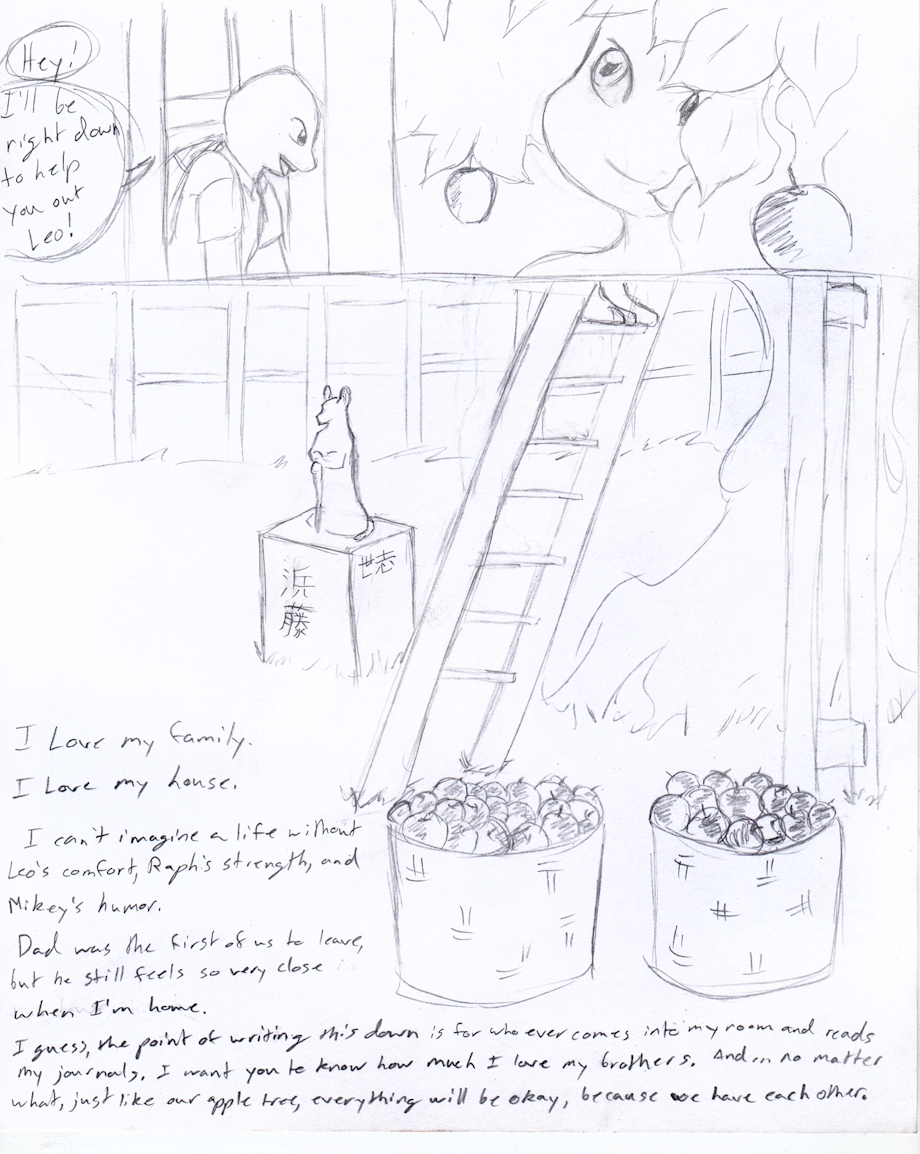 Hey!
I'll be
right down
to help
you out
Leo!
浜
藤
世志
I Love my family.
I Love my house.
I can't imagine a life without
Leo's comfort, Raph's strength, and
Mikey's humor.
Dad was the first of us to leave,
but he still feels so very close
when I'm home.
I guess, the point of writing this down is for who ever comes into my room and reads
my journals. I want you to know how much I love my brothers. And... no matter
what, just like our apple tree, everything will be okay, because we have each other.